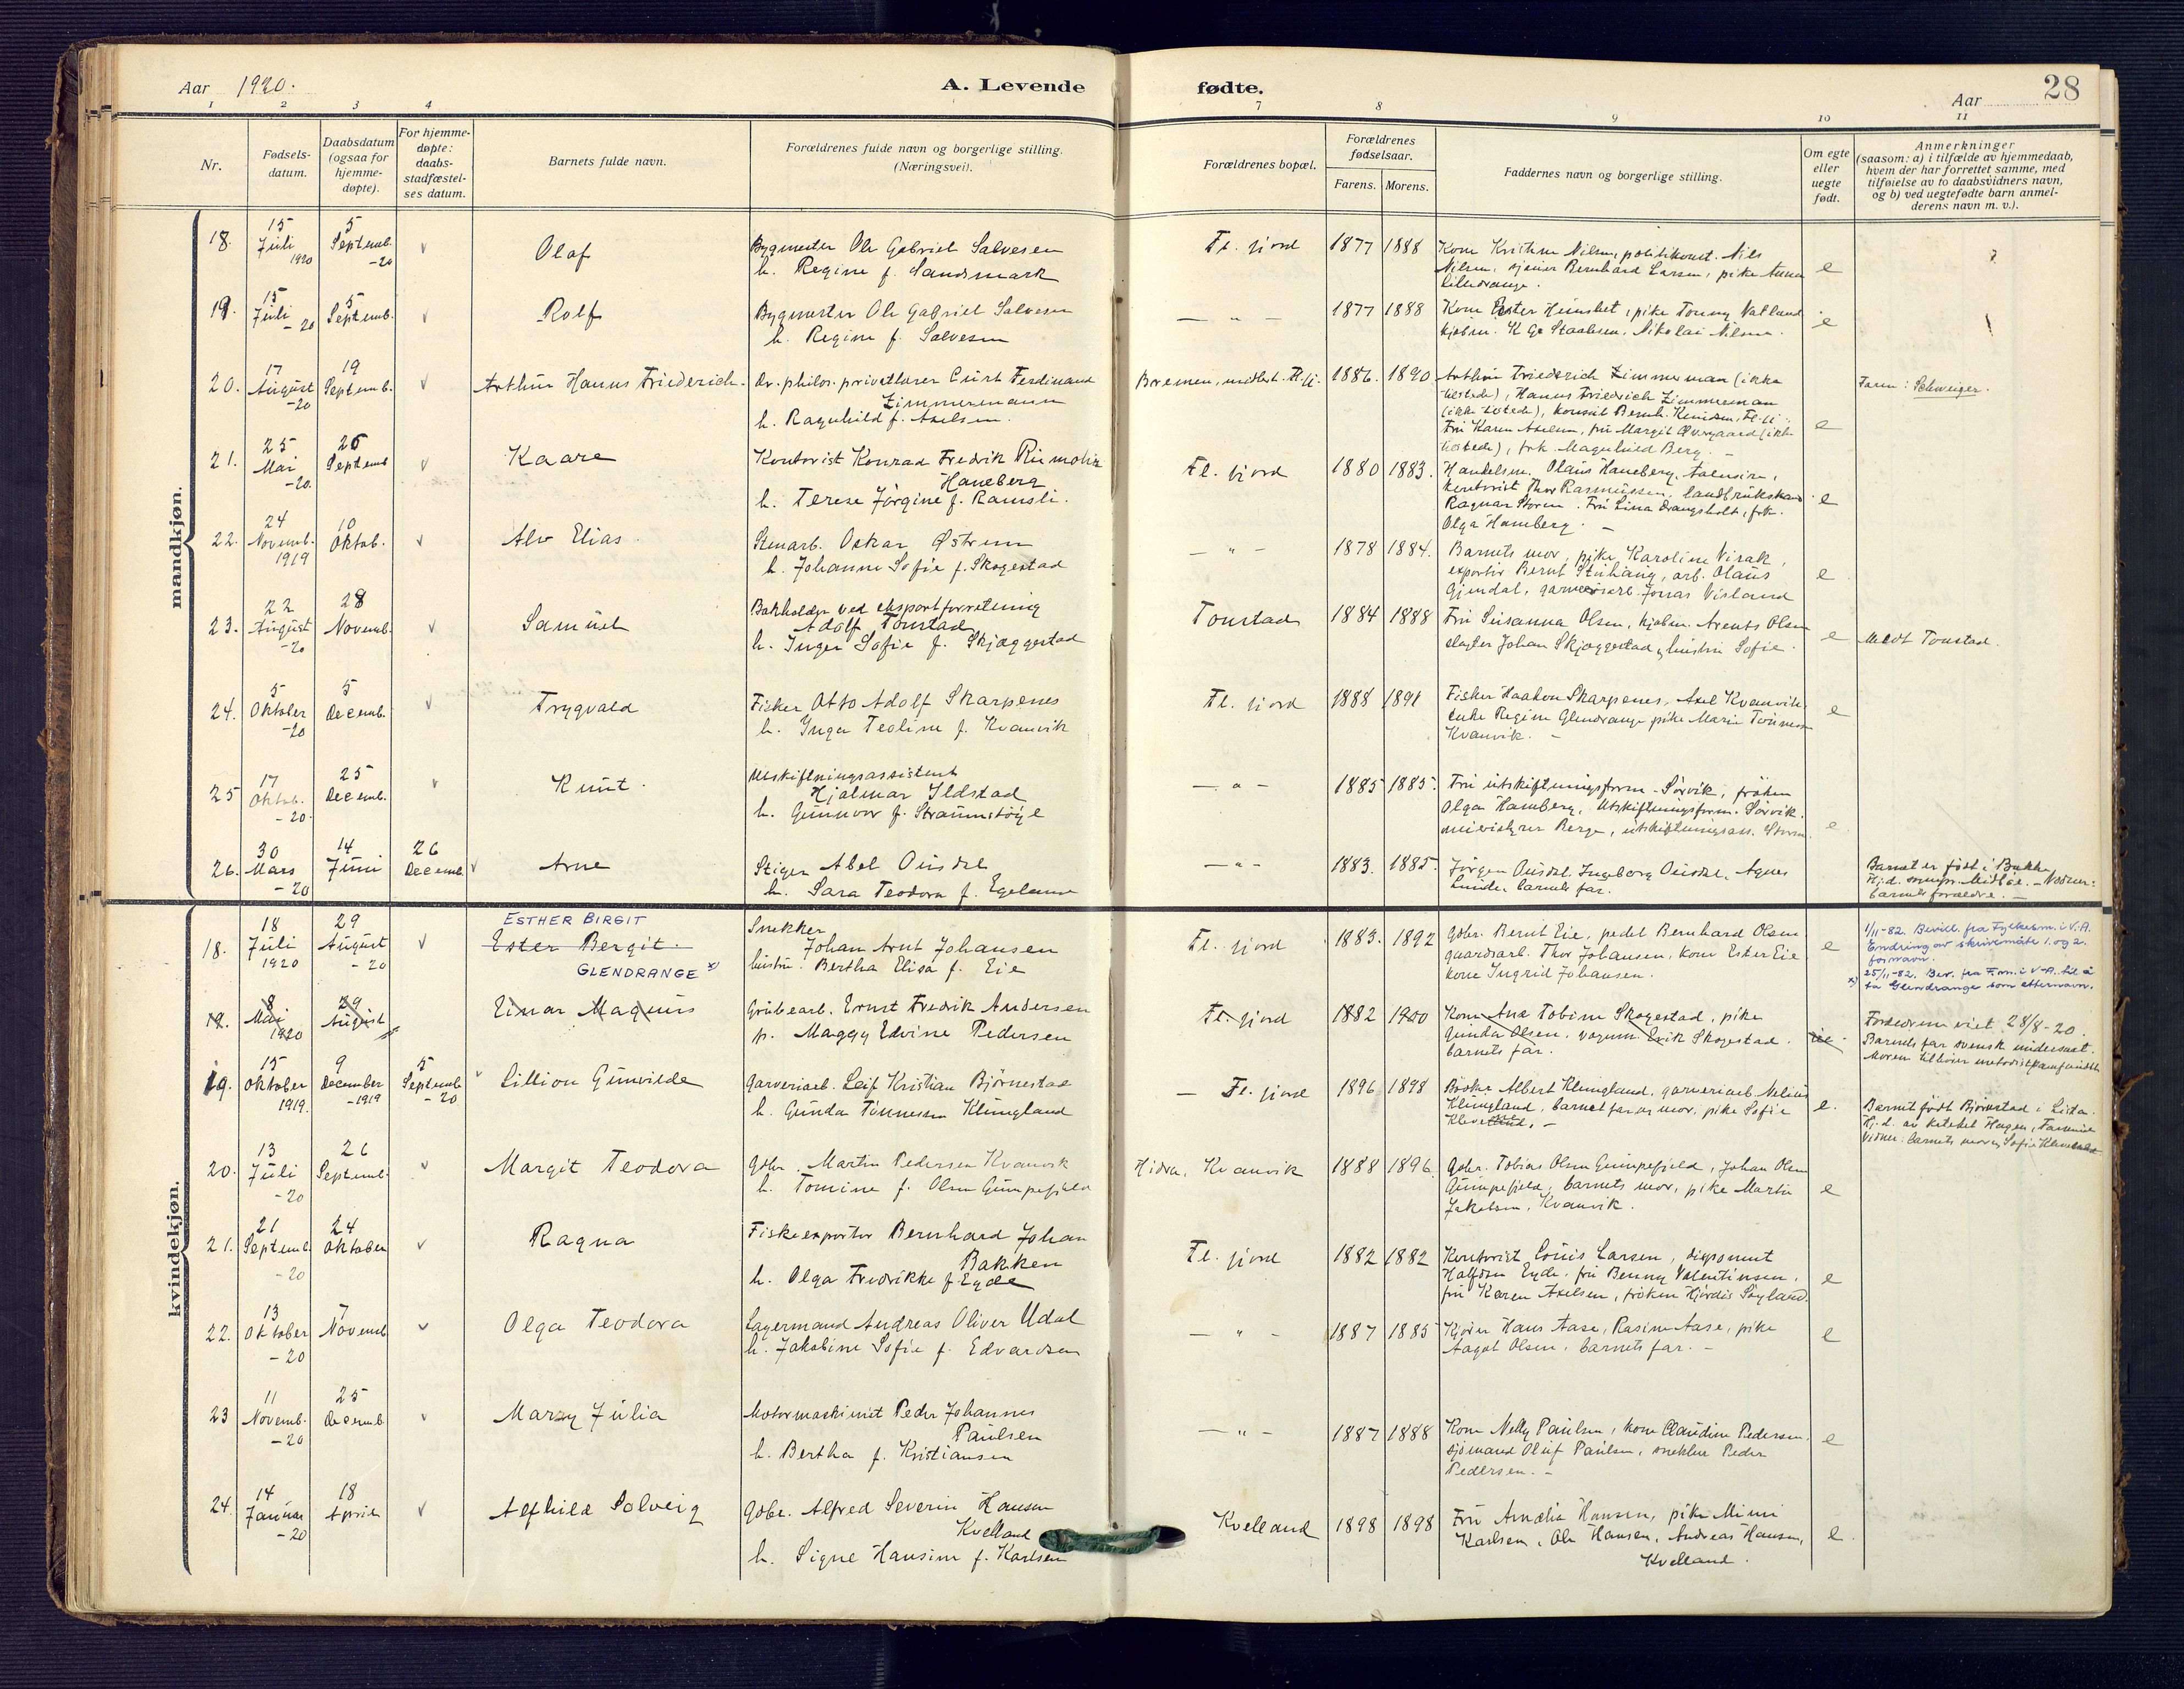 Aar 1920.
A. Levende fødte.
Aar
28
1 2 3 4 7 8 9 10 11
Nr.
Fødsels-
datum.
Daabsdatum
(ogsaa for
hjemme-
døpte).
For hjemme-
døpte:
daabs-
stadfæstel-
ses datum.
Barnets fulde navn.
Forældrenes fulde navn og borgerlige stilling.
(Næringsvei).
Forældrenes bopæl.
Forældrenes
fødselsaar.
Farens. Morens.
Faddernes navn og borgerlige stilling.
Om egte
eller
uegte
født.
Anmerkninger
(saasom: a) i tilfælde av hjemmedaab,
hvem der har forrettet samme, med
tilføielse av to daabsvidners navn,
og b) ved uegtefødte barn anmel-
derens navn m. v.).
mandkjøn.
18. 15 Juli 1920
5 Septemb. -20
Olaf
Bygmester Ole Gabriel Salvesen
h. Regine f. Sandsmark
Fl. fjord 1877 1888
Nilsen, Bernhard Larsen, pike Anna
e
19. 15 Juli -20
5 Septemb.
Rolf
Bygmester Ole Gabriel Salvesen
h. Regine f. Salvesen
— " — 1877 1888
Kone Ester Heimset, pike Tonny Vatland
Nikolai Nilsen.
e
20. 17 August -20
19 Septemb.
Arthur Hanns Friederich.
Dr. philos. privatlærer Curt Ferdinand
Zimmermann
h. Ragnhild f. Axelsen.
Bremen, midlert. Fl. fj. 1886. 1890
Arthur Friederich Zimmerman (ikke
tilstede), Hanns Friedrich Zimmerman
(ikke tilstede), konsul Bernh. Knudsen, Fl. fj.
Fru Karen Axelsen, fru Margit Overgaard (ikke
tilstede), frk. Magnhild Berg. -
e
Faren: Schweizer.
21. 25 Mai -20.
26 Septemb
Kaare
Kontorist Konrad Fredrik
Haneberg
h. Terese Jørgine f. Ramsli.
Fl. fjord 1880 1883.
Handelsm. Olaus Haneberg,
kontorist Thor Rasmussen,
Ragnar Storm. Fru Lina Drangsholt, frk.
Olga Haneberg. -
e
22. 24 Novemb. 1919
10 Oktob.
Alv Elias
Stenarb. Oskar Østrem
h. Johanne Sofie f. Skogestad
— " — 1878 1884.
Barnets mor, pike Karoline Visak,
exportør Bernt Stuhaug, arb. Olaus
Gjendal, garveriarb. Jonas Visland
e
23. 22 August -20
28 Novemb.
Samuel
Bokholder ved eksportforretning
Adolf Tonstad
h. Inger Sofie f. Skjæggestad
Tonstad 1884 1888
Fru Susanna Olsen, kjøbm. Arents Olsen
slagter Johan Skjæggestad og hustru Sofie.
e
Meldt Tonstad.
24. 5 Oktober -20
5 Decemb.
Trygvald
Fisker Otto Adolf Skarpenes
h. Inger Teoline f. Kvanvik
Fl. fjord 1888 1891
Fisker Haakon Skarpenes, Axel Kvanvik
enke Regine Glendrange pike Marie Tønnesen
Kvanvik. -
e
25 17 Oktob. -20.
25 Decemb.
Knut.
Utskiftningsassistent
Hjalmar Ildstad
h. Gunnvor f. Straumstøyl
— " — 1885 1885.
Fru utskiftningsform. Sørvik, frøken
Olga Haneberg, Utskiftningsform. Sørvik.
meieristyrer Berge, utskiftningsass. Storm.
e.
26. 30 Mars -20
14 Juni
26 Decemb.
Arne
Stiger Abel Ousdal
h. Sara Teodora f. Egeland
— " — 1883. 1885.
Jørgen Ousdal, Ingeborg Ousdal, Agnes
Linde, barnets far.
Barnet er født i
barnets forældre. -
kvindekjøn.
18. 18 Juli 1920
29 August -20
ESTHER BIRGIT
Ester Bergit.
GLENDRANGE x)
Snekker
Johan Arnt Johansen
hustru. Bertha Elisa f. Eie
Fl. fjord 1883. 1892
Gbbr. Bernt Eie, pedel Bernhard Olsen
gaardsarb. Thor Johansen, kone Ester Eie
kone Ingrid Johansen.
e
1/11-82. Bevill. fra Fylkesm. i V.A.
Endring av skrivemåte 1. og 2.
fornavn.
x) 25/11-82. Bev. fra F.m. i V-A. til å
ta Glendrange som etternavn.
19. 8 Mai 1920
29 August
Einar Magnus
Grubearb. Ernst Fredrik Andersen
p. Maggy Edvine Pedersen
Fl. fjord 1882 1900
Kone Ane Tobine Skogestad, pike
Gunda Olsen, vognm. Erik Skogestad.
barnets far.
Forældrene viet 28/8-20.
Barnets far svensk undersaat.
19. 15 Oktober 1919.
9 December -1919
5 Septemb -20
Lillian Gunvilde
Garveriarb. Leif Kristian Bjørnestad
h. Gunda Tønnesen Klungland
— Fl. fjord 1896 1898
Albert Klungland, garveriarb. Melius
Klungland, barnets far og mor, pike Sofie
e.
Barnet født Bjørnestad i
Hj. d. av Hagen,
Vidner: barnets mor og Sofie
20. 13 Juli -20
26 Septemb.
Margit Teodora
Gbbr. Martin Pedersen Kvanvik
h. Tomine f. Olsen Gumpefjeld
Hidra, Kvanvik 1888 1896
Gbbr. Tobias Olsen Gumpefjeld, Johan Olsen
Gumpefjeld, barnets mor, pike Martha
Jakobsen, Kvanvik.
e
21. 21 Septemb. -20
24 Oktober
Ragna
Fiskeexportør Bernhard Johan
Bakken
h. Olga Fredrikke f. Eyde
Fl. fjord 1882 1882
Kontorist Louis Larsen, disponent
Halfdan Eyde, fru Benny Valentinsen,
fru Karen Axelsen, frøken Hjørdis Søyland.
e
22. 13 Oktober -20
7 Novemb.
Olga Teodora
Lagermand Andreas Oliver Udal
h. Jakobine Sofie f. Edvardsen
— " — 1887 1885
Hans Aase, Rasine Aase, pike
Aagot Olsen, barnets far. -
e
23 11 Novemb. -20
25 Decemb.
Mary Julia
Motormaskinist Peder Johannes
Paulsen
h. Bertha f. Kristiansen
— " — 1887 1888
Kone Nelly Paulsen, kone Claudine Pedersen,
sjømand Oluf Paulsen, snekker Peder
Pedersen. -
e
24. 14 Januar -20
18 April
Alfhild Solveig
Gbbr. Alfred Severin Hansen
Kvelland
h. Signe Hansine f. Karlsen
Kvelland 1898 1898
Fru Amalia Hansen, pike Minni
Karlsen, Ole Hansen, Andreas Hansen,
Kvelland.
e.